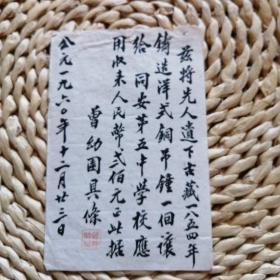 兹将先人遗下古藏一八五四年
铸造洋式铜吊钟一個讓
给同安第五中学校應
用收来人民幣弍佰元正此据
曾幼圃具條
公元一九六〇年十二月廿三日